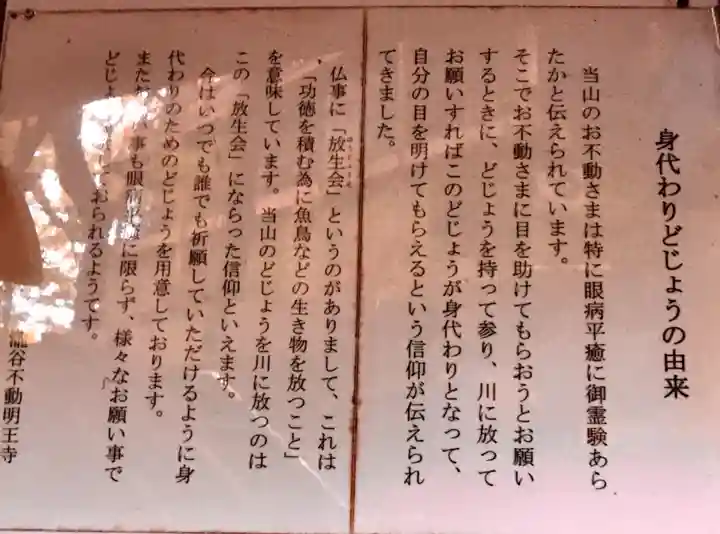 身代わりどじょうの由来
当山のお不動さまは特に眼病平癒に御霊験あら
たかと伝えられています。
そこでお不動さまに目を助けてもらおうとお願い
するときに、どじょうを持って参り、川に放って
お願いすればこのどじょうが身代わりとなって、
自分の目を明けてもらえるという信仰が伝えられ
てきました。
仏事に「放生会」というのがありまして、これは
、「功徳を積む為に魚鳥などの生き物を放つこと」
を意味しています。当山のどじょうを川に放つのは
この「放生会」にならった信仰といえます。
今はいつでも誰でも祈願していただけるように身
代わりのためのどじょうを用意しております。
また 事も眼病 に限らず、様々なお願い事で
どじょ ておられるようです。
瀧谷不動明王寺